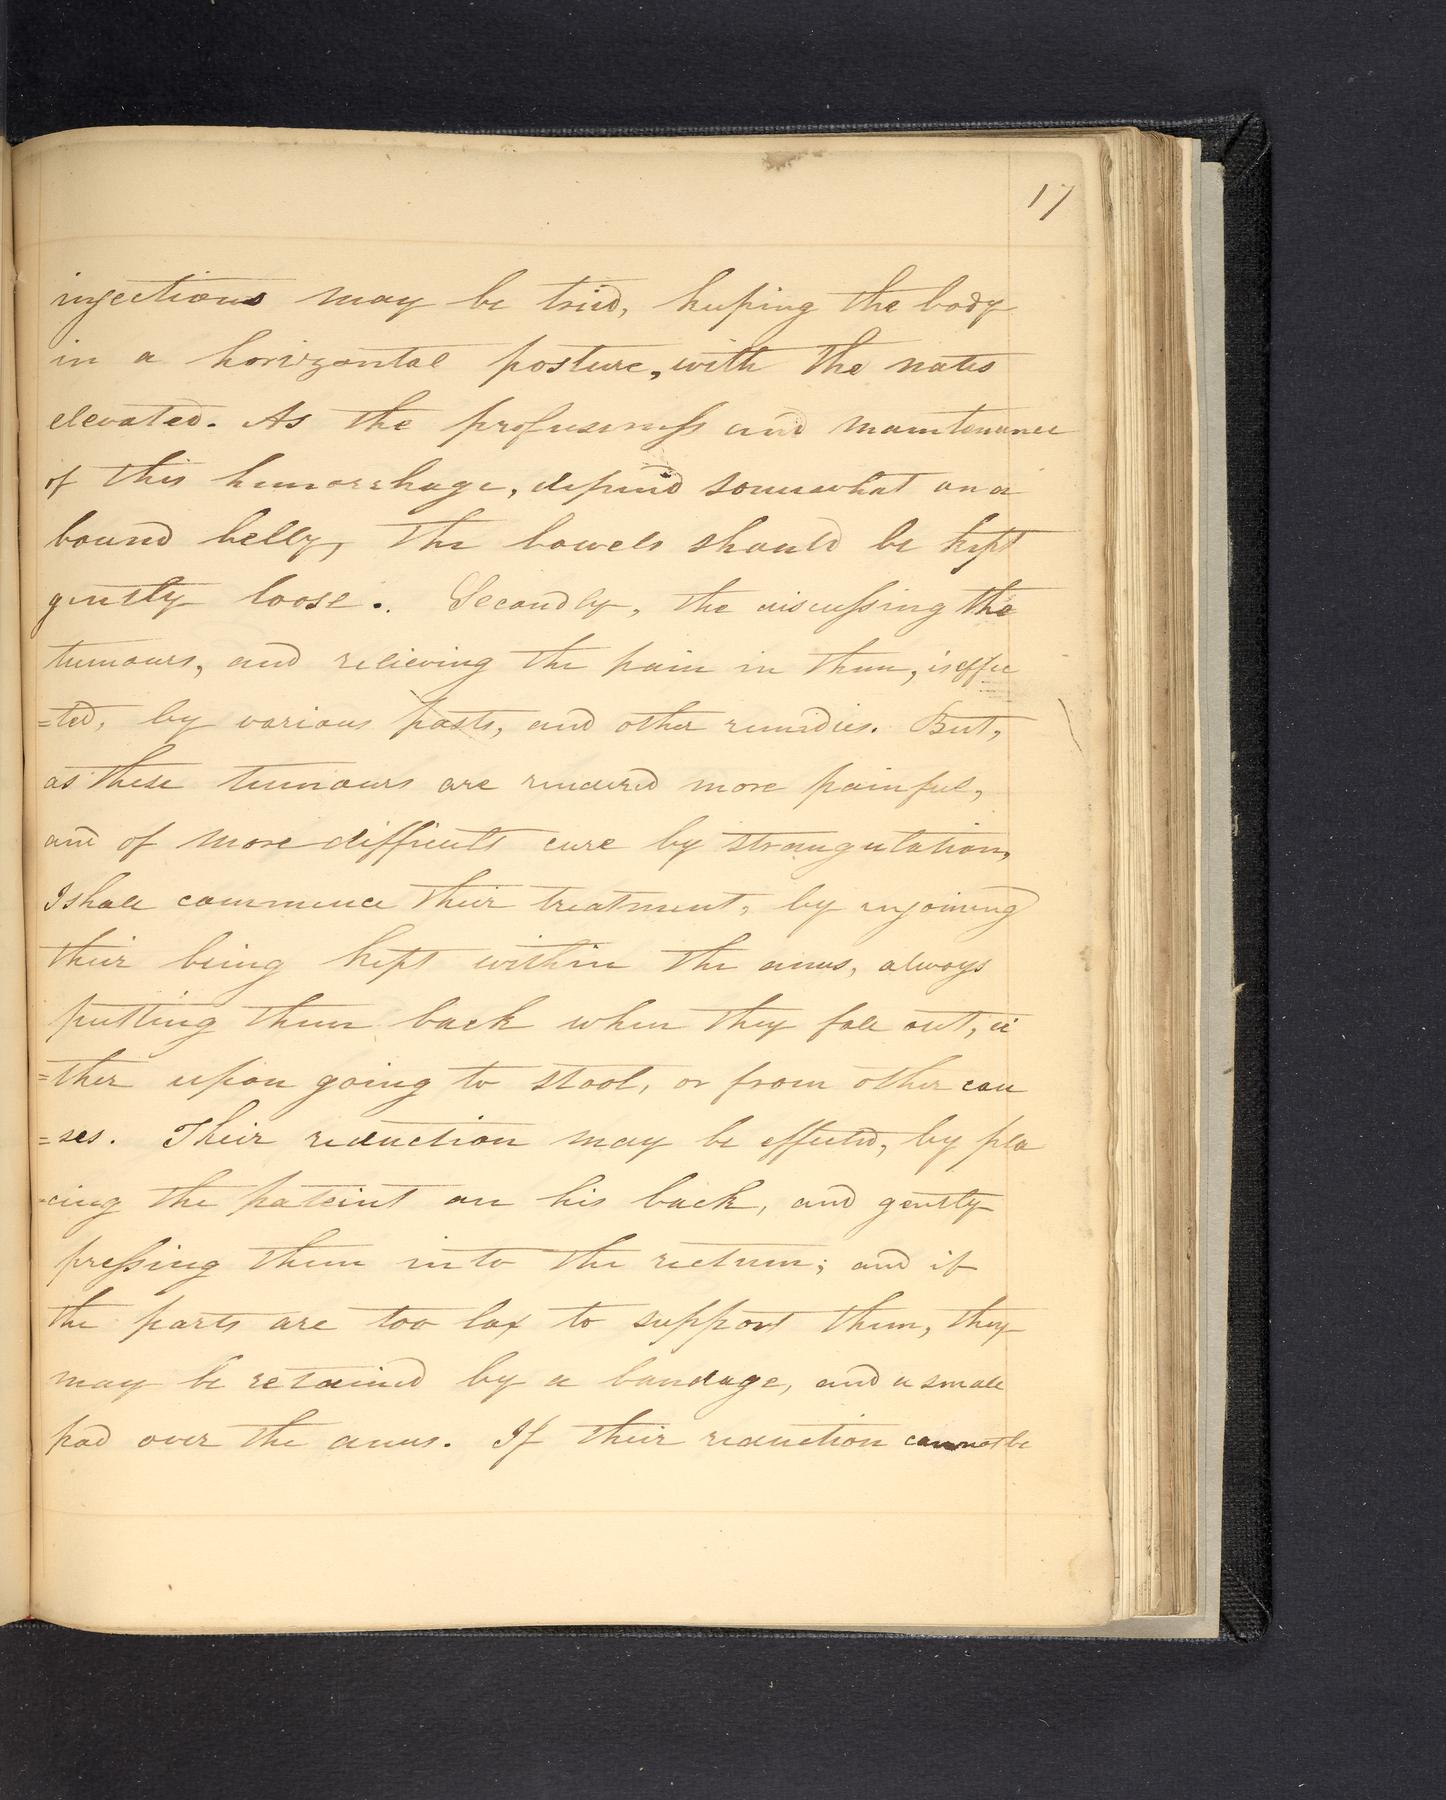 17
injections may be tried, keeping the body
in a horizontal posture, with the nates
elevated. As the profuseness and maintenance
of this hemorrhage, depend somewhat on a
bound belly, the bowels should be kept
gently loose. Secondly, the discussing the
tumours, and relieving the pain in them, is effec
=ted, by various pasts, and other remedies. But,
as these tumours are rendered more painful,
and of more difficult cure by strangulation,
I shall commence their treatment, by enjoining
their being kept within the anus, always
putting them back when they fall out, ei
=ther upon going to stool, or from other cau
=ses. Their reduction may be effected, by pla
=cing the pateint on his back, and gently
pressing them into the rectum; and if
the parts are too lax to support them, they
may be retained by a bandage, and a small
pad over the anus. If their reduction cannot be